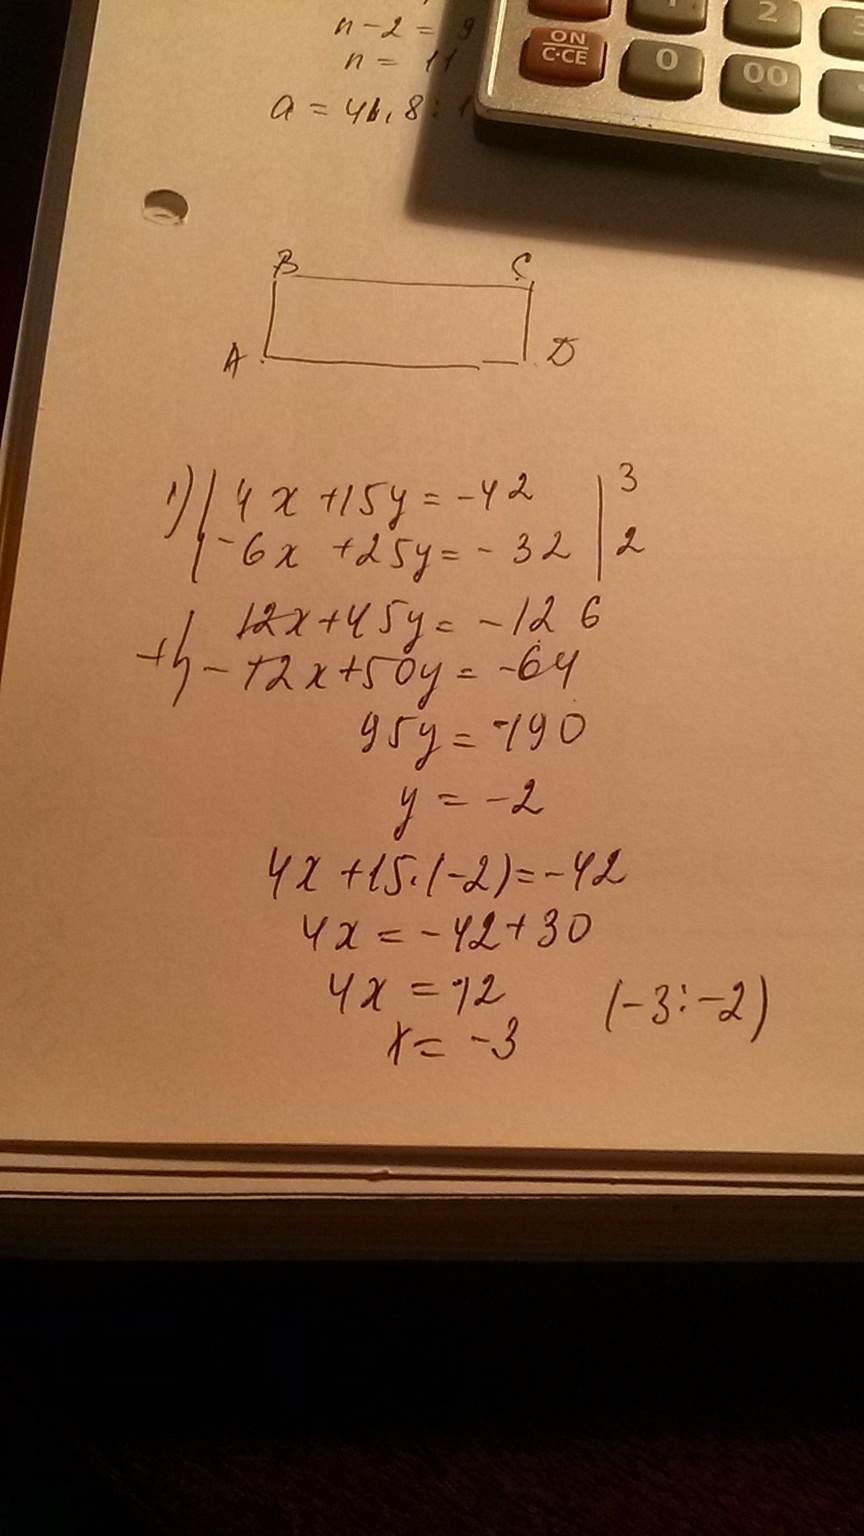 n-2= 9
n= 11
a= 41,8:1
ON
C·CE
0
00
2
B C
A D
1) 4x+15y=-42 | 3
-6x+25y=-32 | 2
12x+45y=-126
+ -12x+50y=-64
95y=-190
y=-2
4x+15·(-2)=-42
4x=-42+30
4x=-12
x=-3 (-3;-2)